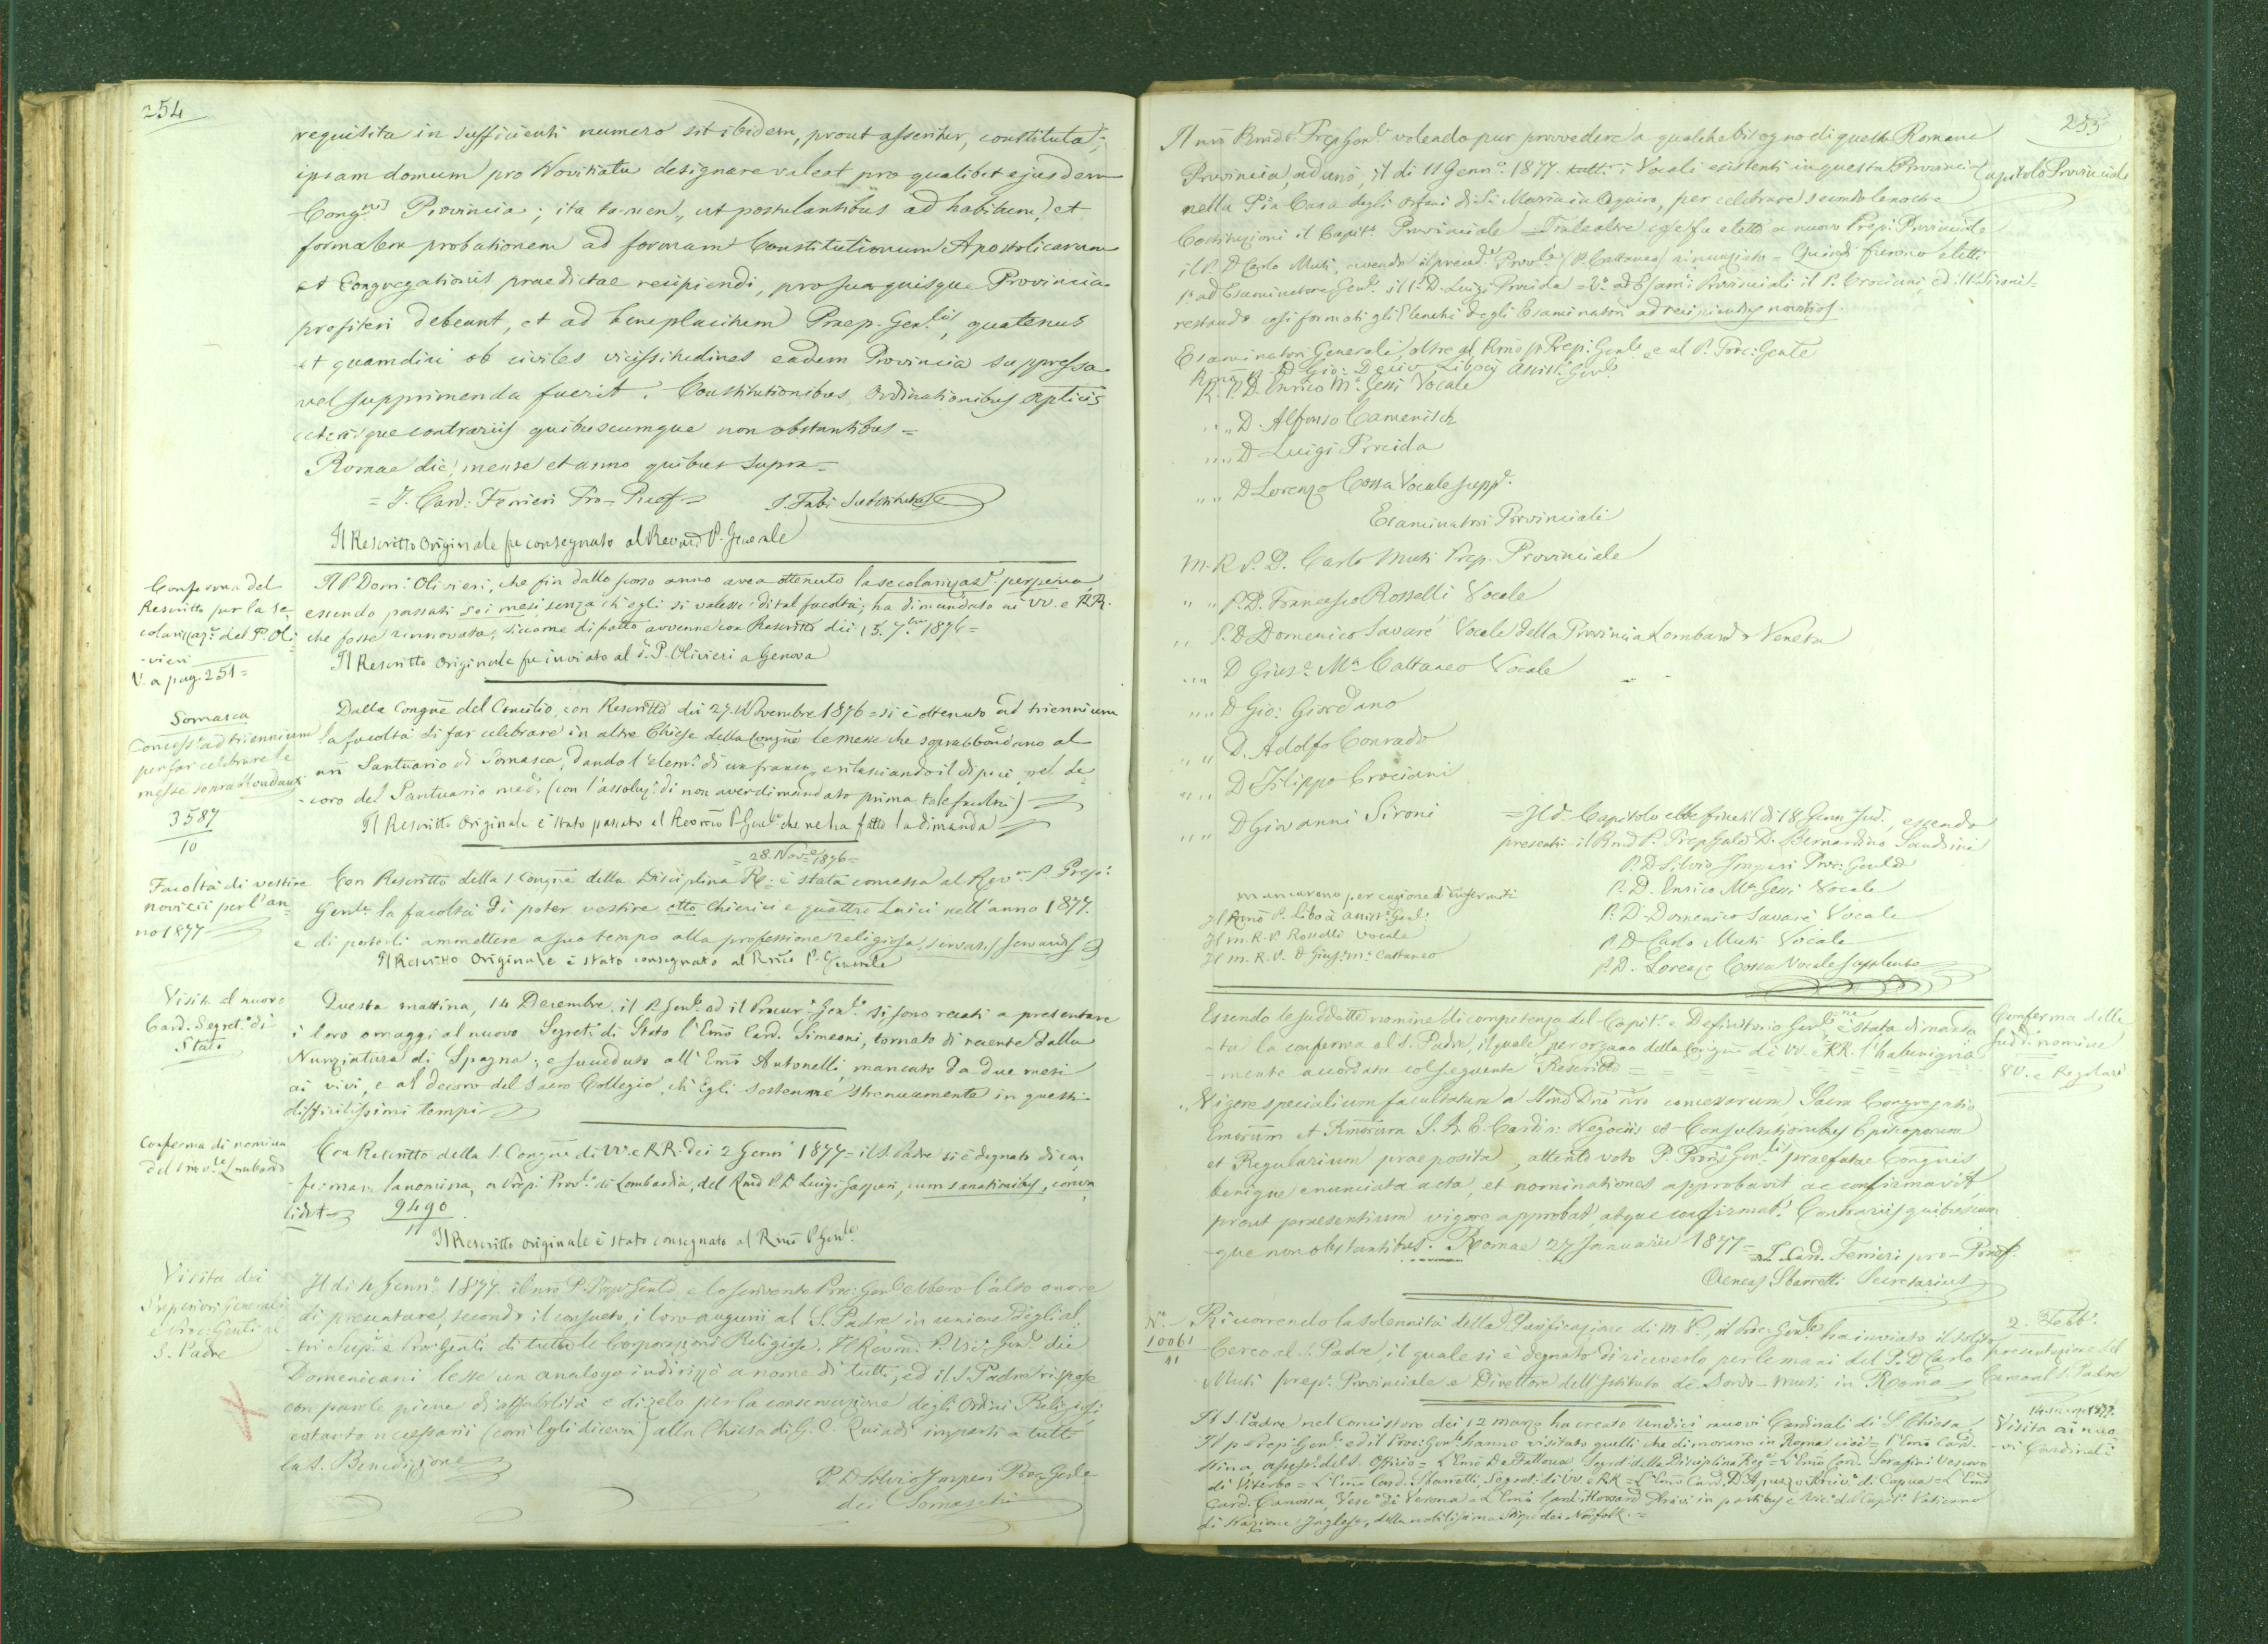 254
requisita in sufficienti numero sit ibidem, prout asseritur, constituta;
ipsam domum pro Novitiatu designare valeat pro qualibet ejusdem
Cong.nis Provincia; ita tamen, ut postulantibus ad habitum, et
formalem probationem ad formam Constitutionum Apostolicarum
et Congregationis praedictae recipiendi, pro sua quisque Provincia
profiteri debeant, et ad beneplacitum Praep. Gen.lis, quatenus
et quamdiu ob civiles vicissitudines eadem Provincia suppressa
vel supprimenda fuerit. Constitutionibus, Ordinationibus Aplicis
ceterisque contrariis quibuscumque non obstantibus =
Romae die, mense et anno quibus supra =
= I. Card: Ferrieri Pro-Praef = I. Fabi Substitutus
Il Rescritto Originale fu consegnato al Revmo P. Generale
Conferma del
Rescritto per la se-
colarizzaz.e del P. Oli-
-vieri
V. a pag. 251 =
Il P. Dom: Olivieri, che fin dallo scorso anno avea ottenuto la secolarizaz.e perpetua,
essendo passati sei mesi senza ch'egli si valesse di tal facoltà; ha dimandato ai VV. e RR.
che fosse rinnovata, siccome di fatto avvenne con Rescritto dei 15. 7.bre 1876 =
Il Rescritto Originale fu inviato al d. P. Olivieri a Genova
Somasca
Concess.e ad triennium
per far celebrare le
messe soprabbondanti
3587
10
Dalla Congne del Concilio, con Rescritto dei 27. Novembre 1876 = si è ottenuto ad triennium
la facoltà di far celebrare in altre Chiese della Congne le messe che soprabbondano al
nro Santuario di Somasca, dando l'elem.a di un franco, e rilasciando il di più nel de-
-coro del Santuario med.o (con l'assoluz.e di non aver dimandato prima tale facoltà)
Il Rescritto Originale è stato passato al Revmo P. Gen.le che ne ha fatto la dimanda
= 28. Nov.e 1876 =
Facoltà di vestire
novizii per l'an-
no 1877
Con Rescritto della S. Congne della Disciplina Re: è stata concessa al Rev.mo P. Prep:
Gen.le la facoltà di poter vestire otto Chierici e quattro Laici nell'anno 1877.
e di poterli ammettere a suo tempo alla professione religiosa, servatis servandis
Il Rescritto Originale è stato consegnato al Rmo P. Generale
Visita al nuovo
Card. Segret.o di
Stato
Questa mattina, 14 Decembre, il P. Gen.le ed il Procur.e Gen.le si sono recati a presentare
i loro omaggi al nuovo Segret.o di Stato l'Emo Card. Simeoni, tornato di recente dalla
Nunziatura di Spagna; e succeduto all'Emo Antonelli, mancato da due mesi
ai vivi, e al decoro del Sacro Collegio, ch'Egli sostenne strenuamente in questi
difficilissimi tempi
Conferma di nomina
del Prov.le Lombardo
Con Rescritto della S. Congne di VV. e RR. dei 2 Genn. 1877 = il S. Padre si è degnato di con-
-fermare la nomina, a Prep: Prov.le di Lombardia, del Rmo P. D. Luigi Gaspari, cum sanationibus, conva
lidet
9490
11
Il Rescritto originale è stato consegnato al Rmo P. Gen.le
Visita dei
Superiori Generali
e Proc: Genli al
S. Padre
Il di 4 Genn.o 1877. il nro P. Prep. Genle e lo scrivente Proc: Gen.le ebbero l'alto onore
di presentare, secondo il consueto, i loro augurii al S. Padre in unione degli al-
-tri Sup.ri e Proc: Genli di tutte le Corporazioni Religiose. Il Revmo P. Vic.o Gen.le dei
Domenicani lesse un analogo indirizzo a nome di tutti; ed il S. Padre rispose
con parole piene di affabilità e di zelo per la conservazione degli Ordini Religiosi
cotanto necessarii (com'Egli diceva) alla Chiesa di G. C. Quindi impartì a tutti
la S. Benedizione
P. D. Silvio Imperi Proc: Gen.le
dei Somaschi
255
Capitolo Provinciale
Il nro Rmo P. Prep. Gen.le volendo pur provvedere a qualche bisogno di questa Romana
Provincia, adunò, il di 11 Genn.o 1877. tutti i Vocali esistenti in questa Provincia
nella Pia Casa degli Orfani di S. Maria in Aquiro, per celebrare secondo le nostre
Costituzioni il Capit.o Provinciale = Tra le altre cose fu eletto a nuovo Prep: Provinciale
il P. D. Carlo Muti, avendo il preced.e Prov.le (P. Cattaneo) rinunziato = Quindi furono eletti
1.o ad Esaminatore Gen.le il P. D. Luigi Procida = 2.o ad Esami. Provinciali il P. Crociani, ed il P. Sironi =
restando così formati gli Elenchi degli Esaminatori ad recipiendos novitios.
Esaminatori Generali, oltre al Rmo P. Prep: Gen.le e al P. Proc: Gente
Rmo P. D. Gio: Decio Libois Assist. Gen.le
R. P. D. Enrico M.a Gessi Vocale
" " D. Alfonso Camenisch
" " D. Luigi Procida
" " D. Lorenzo Cossa Vocale supp.e
Esaminatori Provinciali
M. R. P. D. Carlo Muti Prep. Provinciale
" " P. D. Francesco Rosselli Vocale
" " P. D. Domenico Savarè Vocale della Provincia Lombardo Veneta
" " D. Gius.e M.a Cattaneo Vocale
" " D. Gio: Giordano
" " D. Adolfo Conrado
" " D. Filippo Crociani
" " D. Giovanni Sironi
= Il d.o Capitolo ebbe fine il di 18 Genn. sud., essendo
presenti il Rmo P. Prep. Gale D. Bernardino Sandrini
P. D. Silvio Imperi Proc: Genle
P. D. Enrico M.a Gessi Vocale
P. D. Domenico Savarè Vocale
P. D. Carlo Muti Vocale
P. D. Lorenzo Cossa Vocale Supplente
mancarono per cagione d'infermità
Il Rmo P. Libois Assist.e Gen.le
Il M. R. P. Rosselli Vocale
Il M. R. P. D. Gius.e M.a Cattaneo
Conferma delle
sud.e nomine
VV. e Regolari
Essendo le suddette nomine di competenza del Capit.o e Definitorio Gen.le, è stata dimanda
-ta la conferma al S. Padre, il quale per organo della Congne di VV. e RR. l'ha benigna-
-mente accordata col seguente Rescritto = = = = = =
Vigore specialium facultatum a Smo Dno nro concessarum, Sacra Congregatio
Emorum et Rmorum S. R. E. Cardin: Negociis et Consultationibus Episcoporum
et Regularium praeposita, attento voto P. Proris Gen.lis praefatae Congnis
benigne enunciata acta, et nominationes approbavit ac confirmavit,
prout praesentium vigore approbat, atque confirmat. Contrariis quibuscum-
-que non obstantibus. Romae 27 Januarii 1877 =
I. Card. Ferrieri pro-Praef.
Aeneas Sbarretti Secretarius
N.o
10061
11
2. Febb.
presentazione del
Cereo al S. Padre
Ricorrendo la solennità della Purificazione di M. V., il Proc: Gen.le ha inviato il solito
Cereo al S. Padre, il quale si è degnato di riceverlo per le mani del P. D. Carlo
Muti prep. Provinciale e Direttore dell'Istituto de' Sordo-Muti in Roma
Visita ai nuo-
-vi Cardinali
Il S. Padre nel Concistoro dei 12 marzo ha creato undici nuovi Cardinali di S. Chiesa.
Il P. Prep: Gen.le ed il Proc: Gen.le hanno visitato quelli che dimorano in Roma cioè = l'Emo Card.
Nina, assess.e del S. Offizio = L'Emo De Falloux Segret. della Disciplina Reg.e = L'Emo Card. Serafini Vescovo
di Viterbo = L'Emo Card. Sbarretti, Segret: di VV. e RR. = L'Emo Card. D'Apuzzo Arciv.o di Capua = L'Emo
Card. Canossa, Vesc.o di Verona = L'Emo Card. Howard Arciv. in partibus e Vic.o del Capit.o Vaticano
di Nazione Inglese, della nobilissima Stirpe dei Norfolk. =